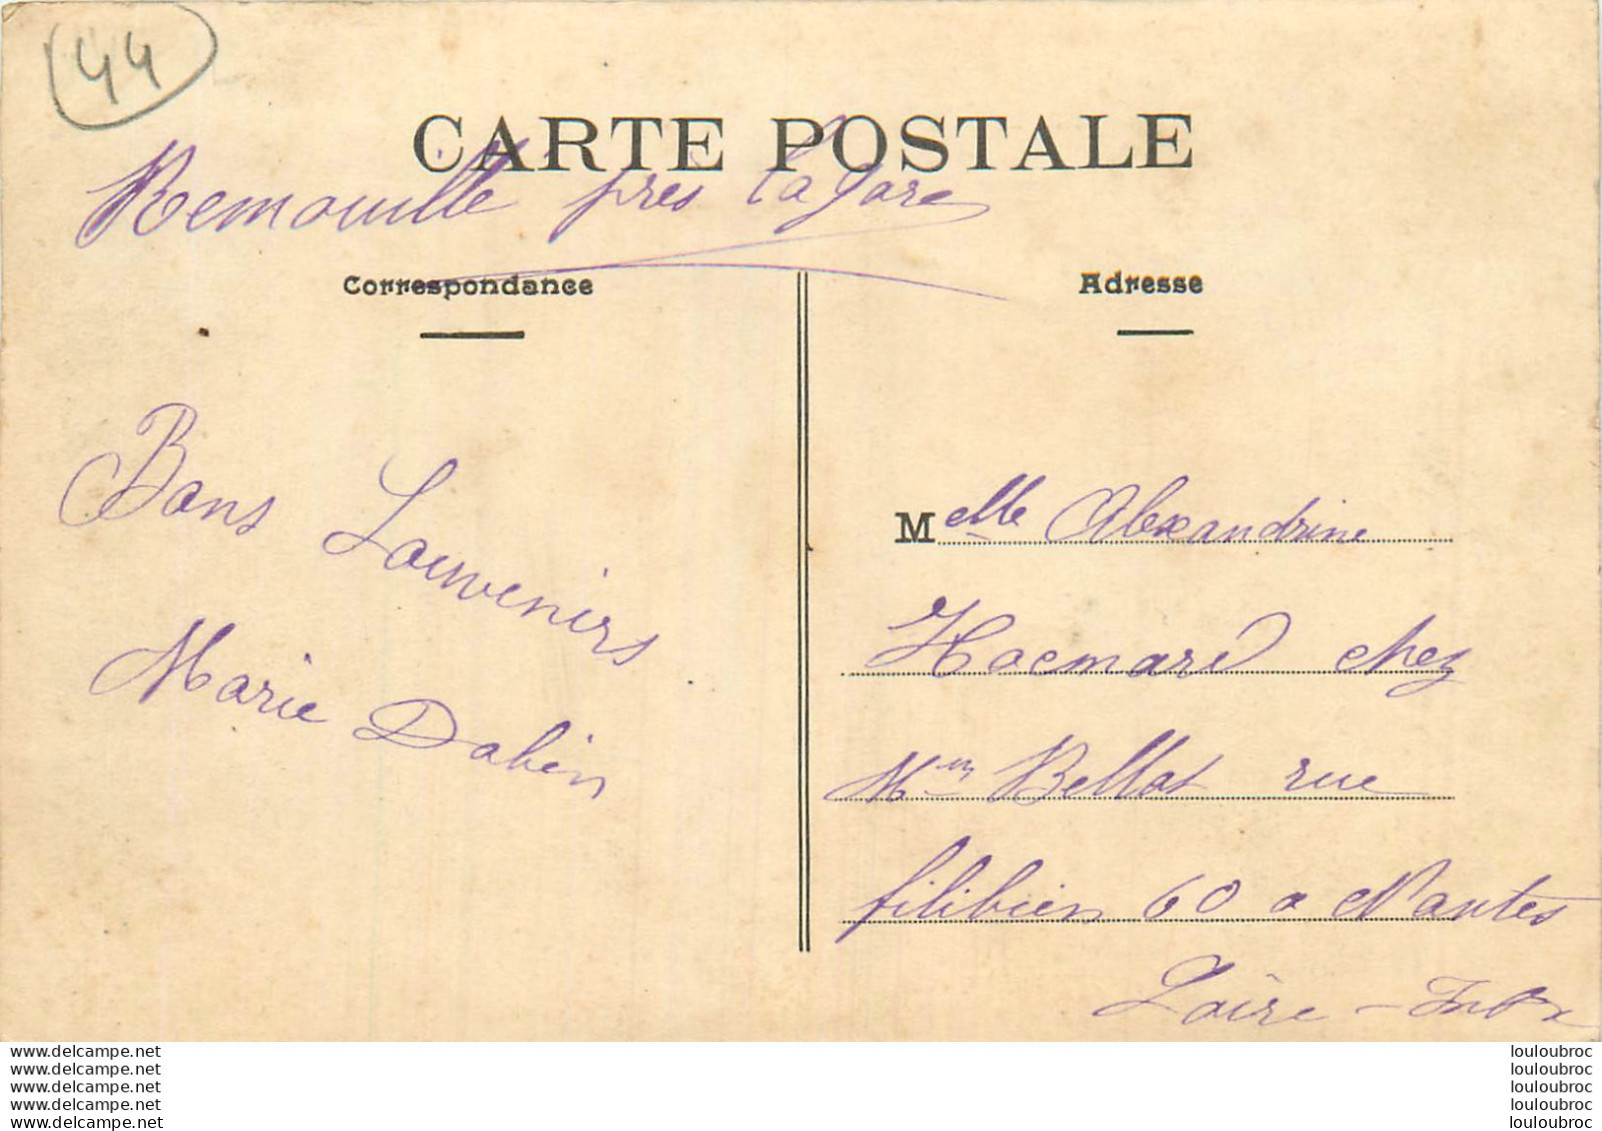 44
CARTE POSTALE
Remouille près la gare
Correspondance
Adresse
Bons Souvenirs
Marie Dabin
Melle Alexandrine
Haemard chez
Mme Bellot rue
filibien 60 a Nantes
Loire-Infre
www.delcampe.net
www.delcampe.net
www.delcampe.net
www.delcampe.net
www.delcampe.net
louloubroc
louloubroc
louloubroc
louloubroc
louloubroc